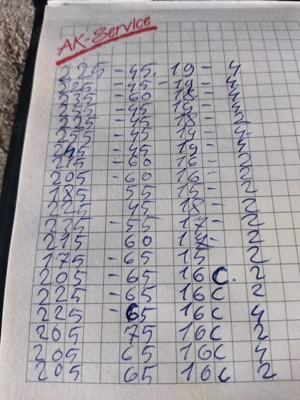 AK-Service
225 - 45 19 - 4
225 - 45 - 19 - 4
235 - 60 18 - 4
255 - 45 19 -
225 - 45 18 - 2
255 - 45 19 - 4
245 - 45 19 - 2
215 - 60 16 - 2
205 - 60 16 - 2
185 55 15 - 2
225 45 18 - 2
235 - 55 17 - 2
215 60 2
175 - 65 15 2
205 - 65 16C. 2
225 - 65 16C 2
225 - 65 16C 4
205 75 16C 2
205 65 16C 4
205 65 16C 2